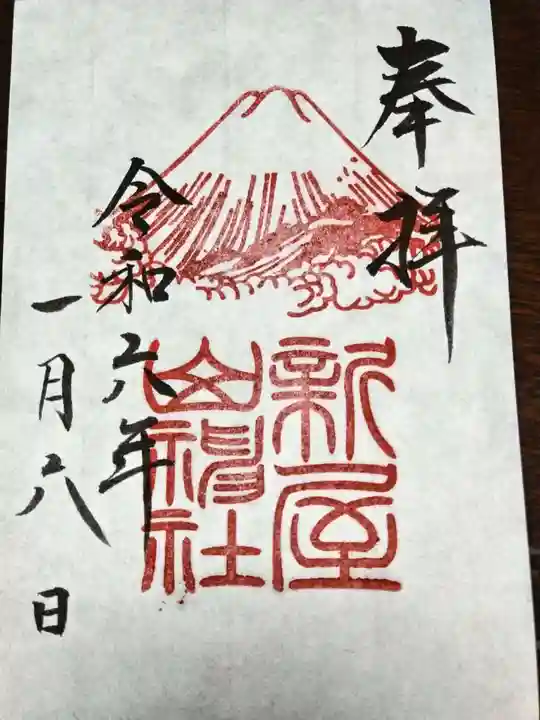 奉拝
新屋
山神社
令和六年
一月六八日